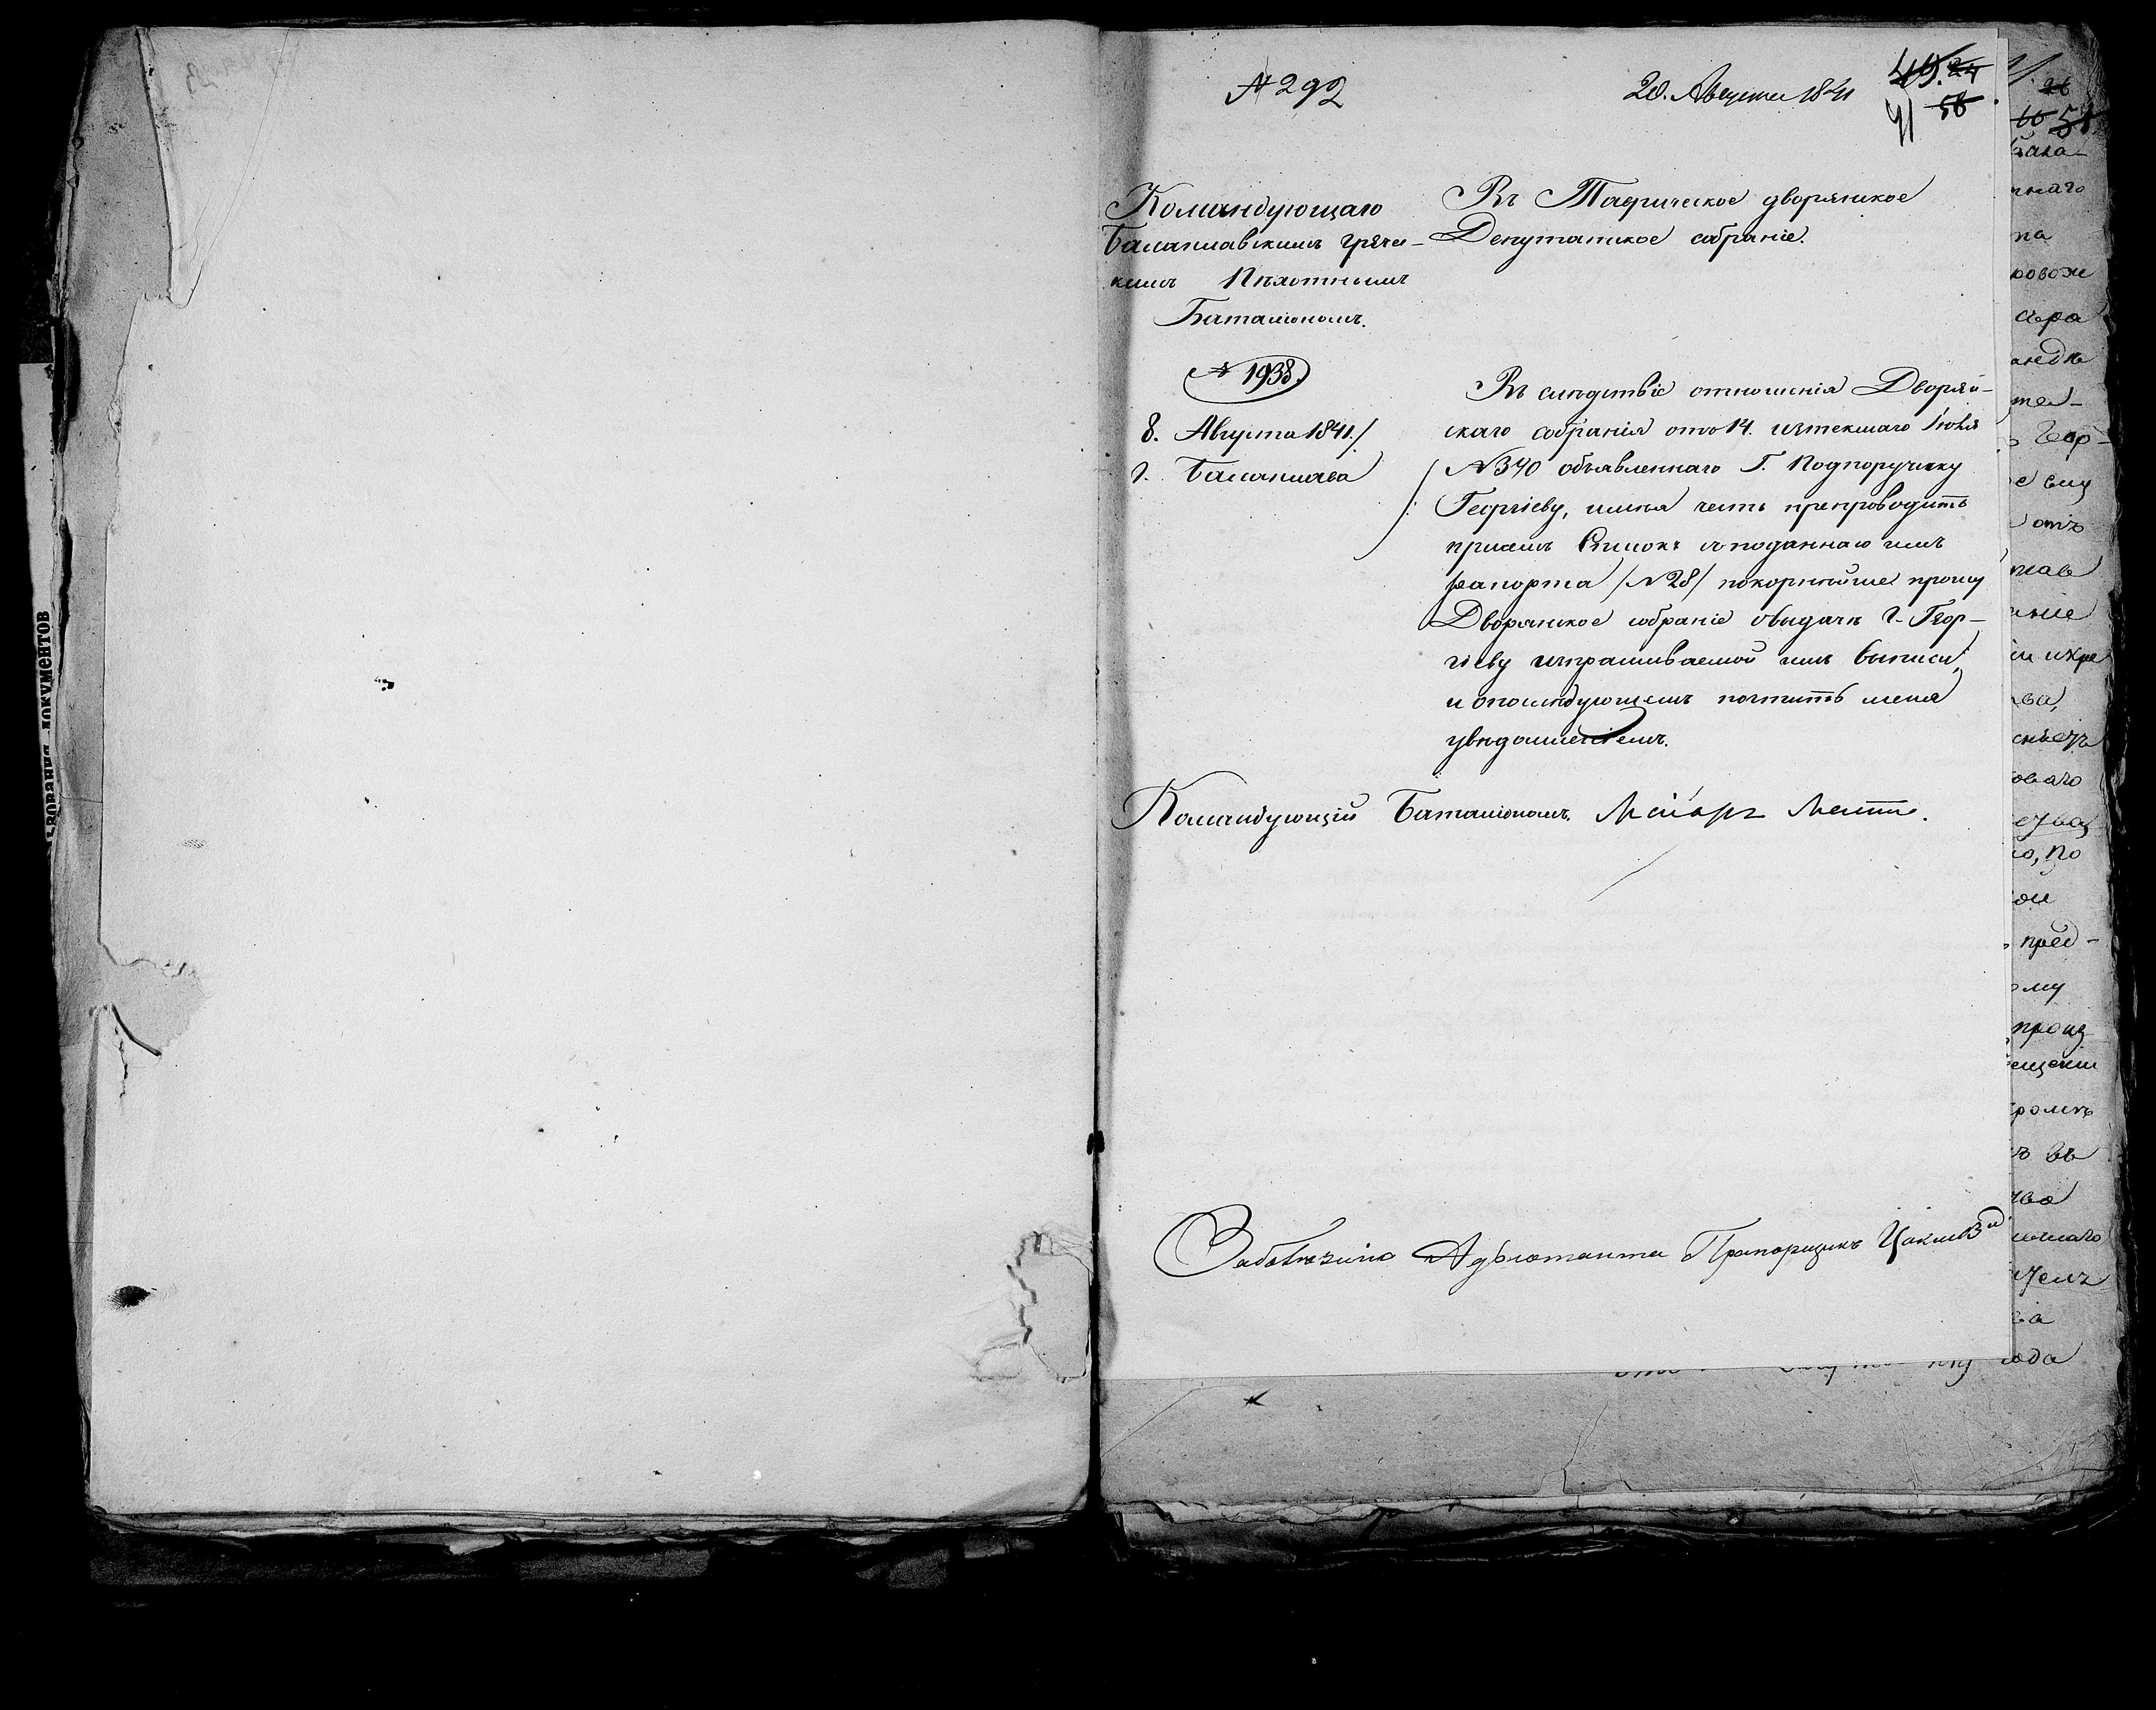 № 292
20. Августа 1841
49. 24
41 58
Командующаго
Балаклавскимъ грече-
кимъ Пѣхотнымъ
Баталіономъ.
№ 1938.
8. Августа 1841./
г. Балаклава
Въ Таврическое дворянское
Депутатское собраніе.
Въ слѣдствіе отношенія Дворян-
скаго собранія отъ 14. истекшаго Іюля
№ 340 объявленнаго Г. Подпоручику
Георгіеву, имѣя честь препроводить
присемъ Списокъ съ поданнаго имъ
рапорта /№ 28/ покорнѣйше прошу
Дворянское собраніе о выдачѣ Г. Геор-
гіеву испрашиваемой имъ выписи,
и о послѣдующемъ почтить меня
увѣдомленіемъ.
Командующій Баталіономъ. Маіоръ
За болѣзнію Адъютанта Прапорщикъ
26
60 51
наго
на
овож
андѣ
тел-
Геор-
отъ
ніе
ва,
оваго
о, по
пред-
ому
произ
ещеніи
ромѣ
въ
года
ЬЗОВАНИЯ ДОКУМЕНТОВ